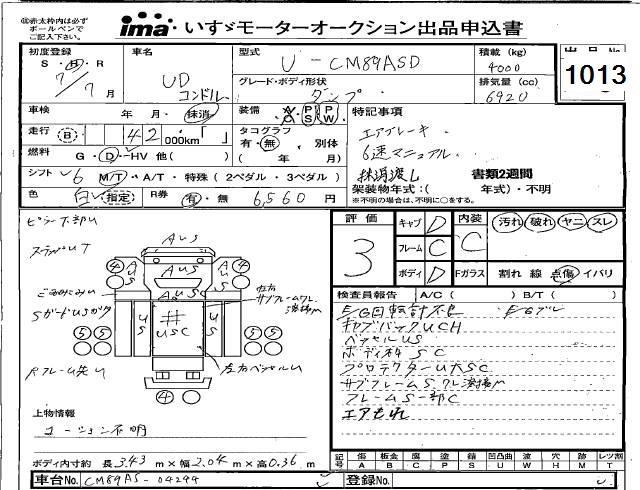 ㊟赤太枠内は必ず
ボールペンで
ご記入下さい。
ima いすゞモーターオークション出品申込書
初度登録 車名 型式 U-CM89ASD 積載(kg) 4000
出品No. 1013
S・H・R 7/7月
UD コンドル
グレード・ボディ形状 ダンプ
排気量(cc) 6920
車検 年 月・抹消 装備 A/C P/S P/W 特記事項
走行 (B) 42 000km「 」 タコグラフ 有・無 別体 ( 年 月)
エアブレーキ
燃料 G・D・HV 他( )
6速マニュアル
シフト 6 M/T・A/T・特殊(2ペダル・3ペダル)
抹消渡し 書類2週間
架装物年式:( 年式)・不明
※不明の場合は、不明に○をする。
色 白い(指定) R券 有・無 6,560円
評価 3
キャブ D
フレーム C
ボディ D
内装 C
汚れ・破れ・ヤニ・スレ
Fガラス 割れ 線 点傷 イバリ
検査員報告 A/C( ) B/T( )
E/G回転計不良 E/Gブル
キャブバックUCH
ベッセルUS
ボディ枠SC
プロテクターU大SC
サブフレームS クレ溶接M
フレームS一部C
エアもれ
AUS
AUS
AUS
US
US
# USC
SガードUSガタ
左右ベッセルU
4
4
5 5
5 5
4
上物情報
コーション不明
ボディ内寸約 長3.43m×幅2.04m×高0.36m
記号 傷A 板金B 腐C 塗P 錆S 凹凸曲U 波W 穴H 跡M レンズ割T
車台No. CM89AS-04294 登録No.